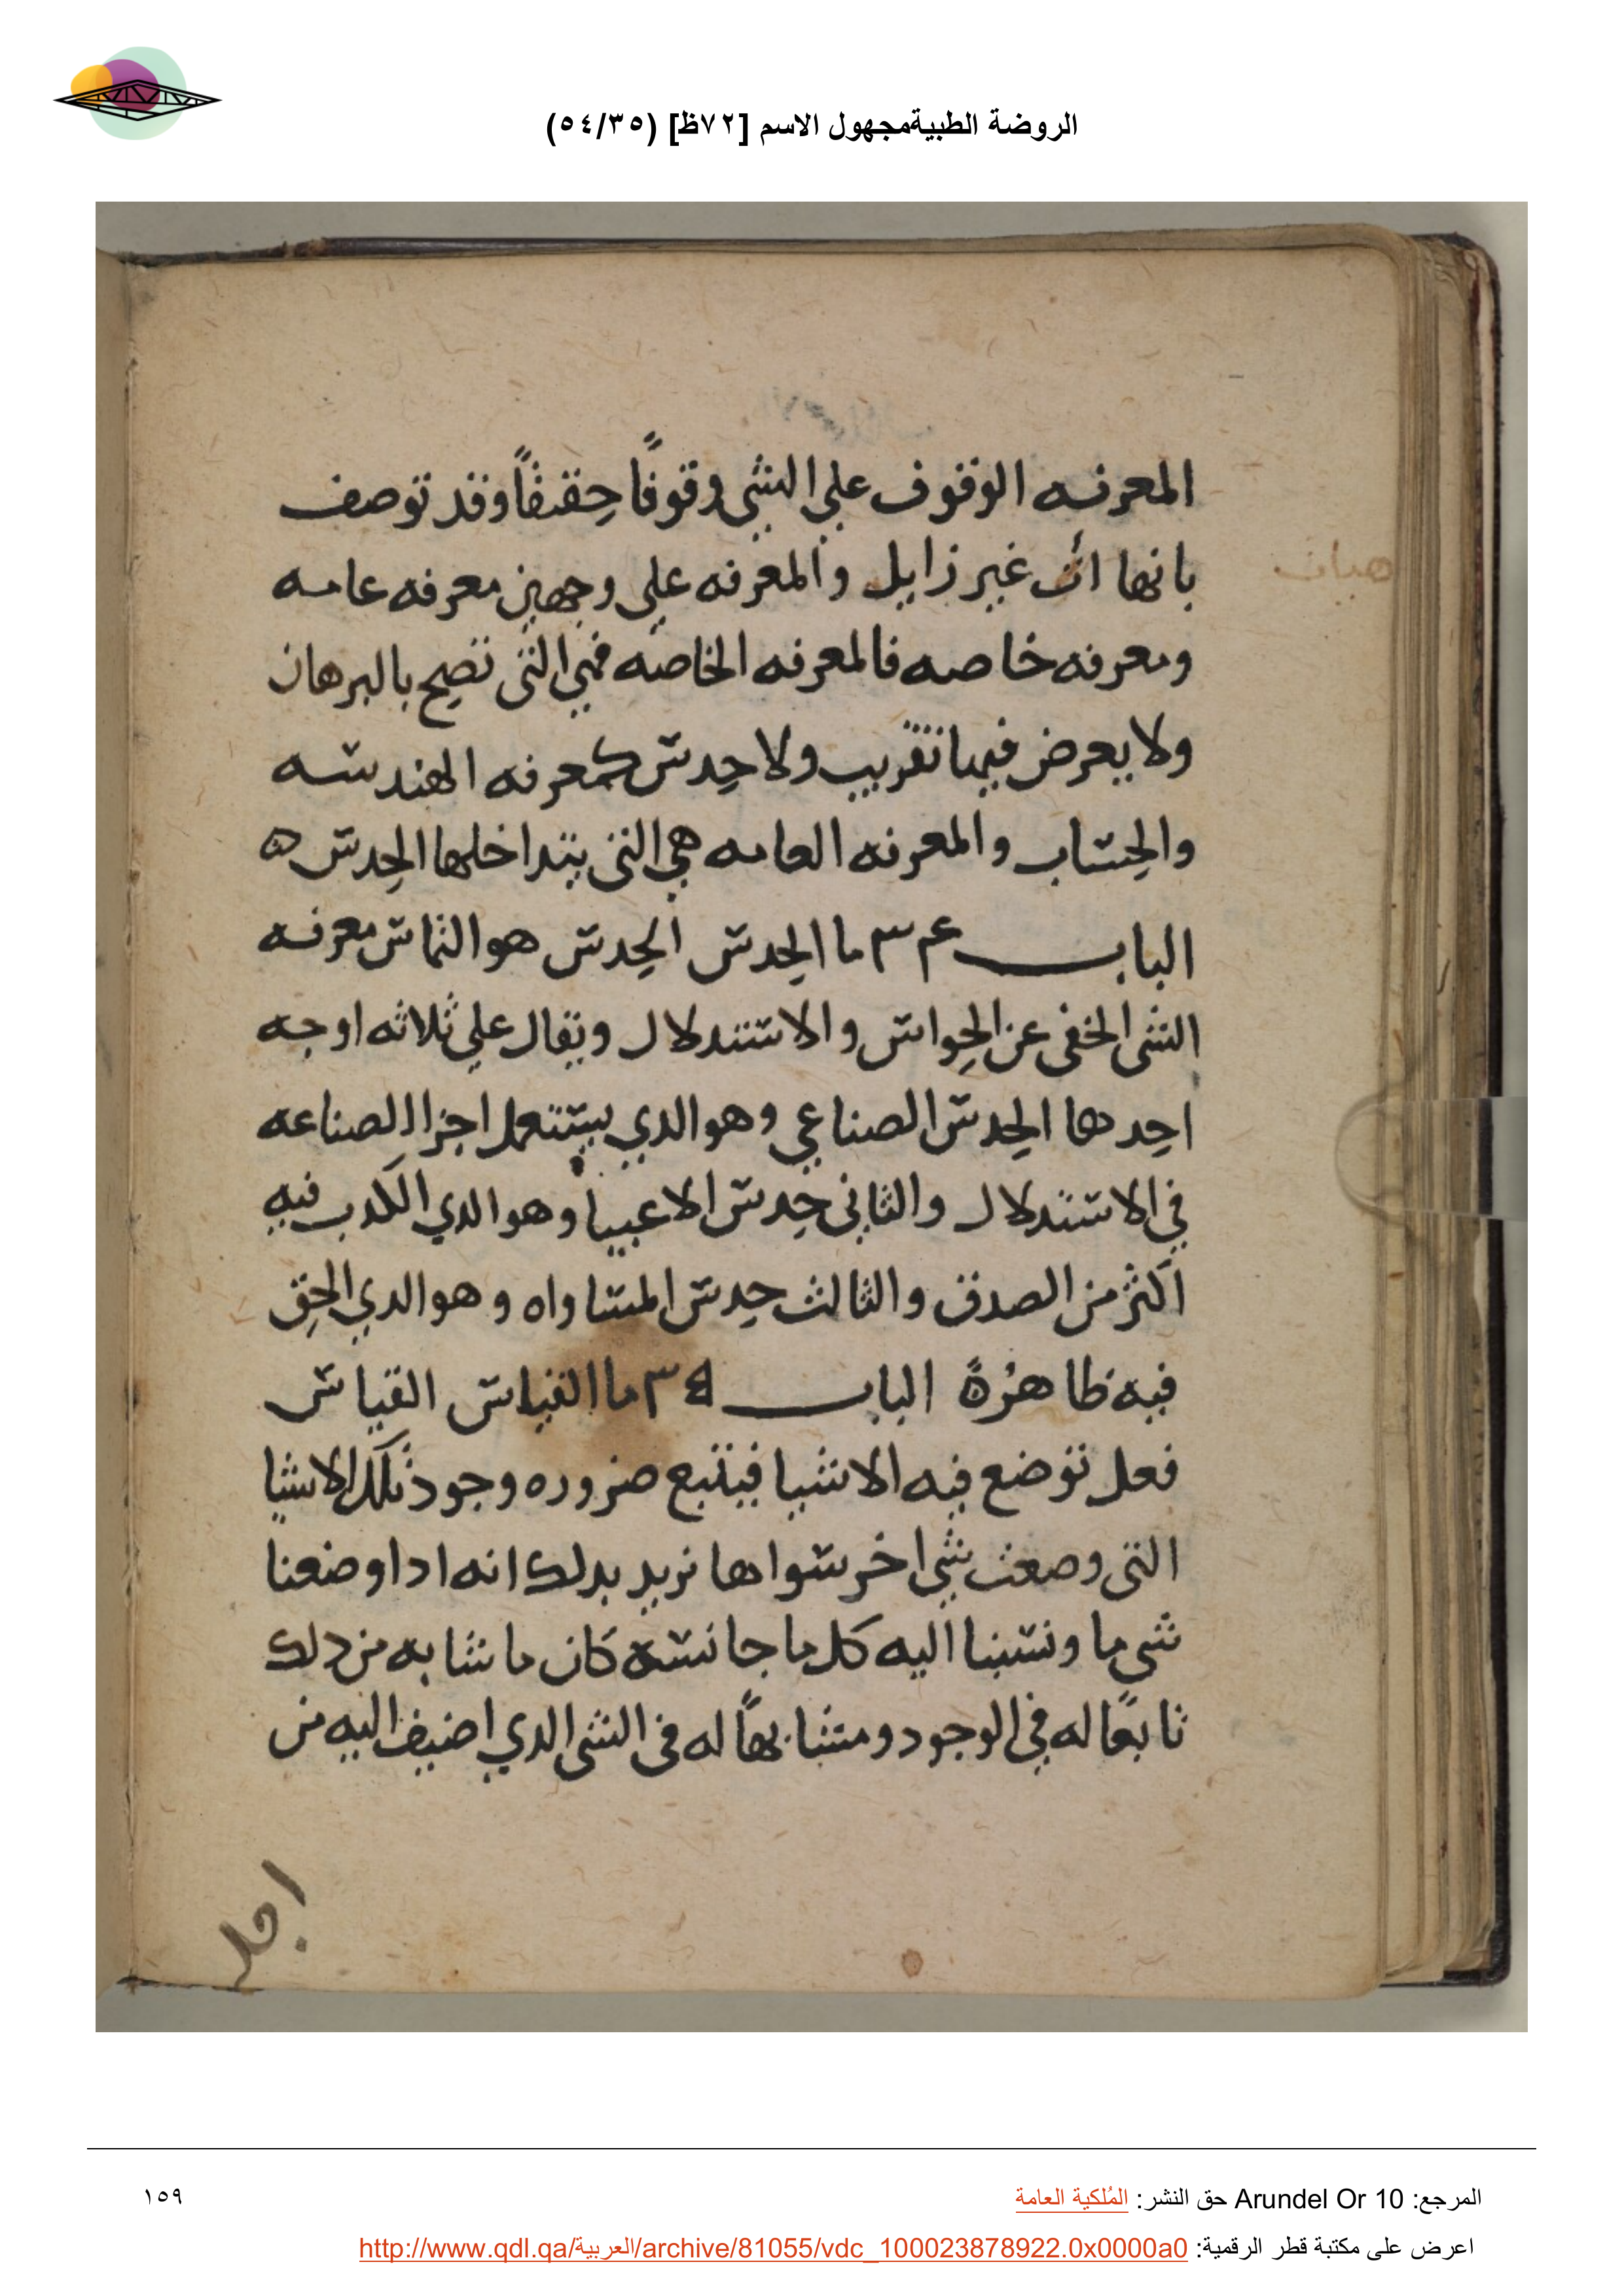 الروضة الطبيةمجهول الاسم [٧٢ظ] (٥٤/٣٥)
المعرفه الوقوف علي الشي وقوفًا حقيقًا وقد توصف
بانها اثر غير زايل والمعرفه علي وجهين معرفه عامه
ومعرفه خاصه فالمعرفه الخاصه فهي التي تصح بالبرهان
ولا يعرض فيها تقريب ولا حدس كمعرفه الهندسه
والحساب والمعرفه العامه هي التي يتداخلها الحدس ه
الباب ٣٤ ما الحدس الحدس هو التماس معرفه
الشي الخفي عن الحواس والاستدلال ويقال علي ثلاثه اوجه
احدها الحدس الصناعي وهو الدي يستعمل اجزا الصناعه
في الاستدلال والثاني حدس الاغبيا وهو الدي الكدب فيه
اكثر من الصدق والثالث حدس المساواه وهو الدي الحق
فيه ظاهرة الباب ٣٥ ما القياس القياس
فعل توضع فيه الاشيا فيتبع ضروره وجود تلك الاشيا
التي وصعت شي اخر سواها نريد بدلك انه ادا وضعنا
شي ما ونسبنا اليه كل ما جانسه كان ما شابه من دلك
تابعًا له في الوجود ومتشابهًا له في الشي الدي اضيف اليه من
اجل
المرجع: Arundel Or 10 حق النشر: المُلكية العامة
١٥٩
اعرض على مكتبة قطر الرقمية: http://www.qdl.qa/العربية/archive/81055/vdc_100023878922.0x0000a0